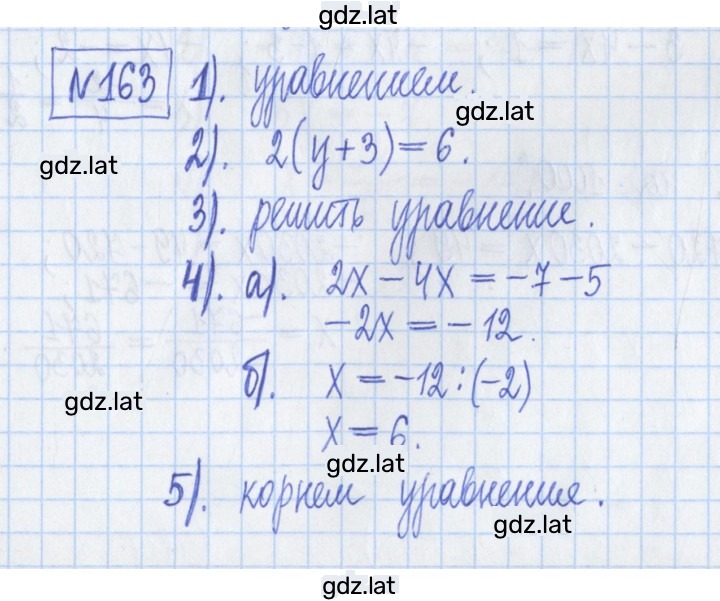 gdz.lat
№163 1). уравнением.
gdz.lat
2). 2(y+3)=6.
gdz.lat
3). решить уравнение.
4). а). 2x-4x=-7-5
-2x=-12.
б). x=-12:(-2)
gdz.lat
x=6.
gdz.lat
5). корнем уравнения.
gdz.lat
gdz.lat